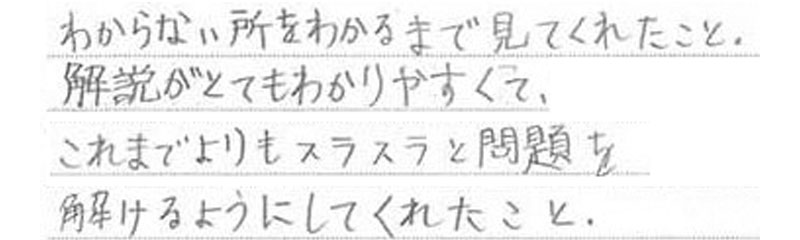 わからない所をわかるまで見てくれたこと.
解説がとてもわかりやすくて、
これまでよりもスラスラと問題を
解けるようにしてくれたこと.